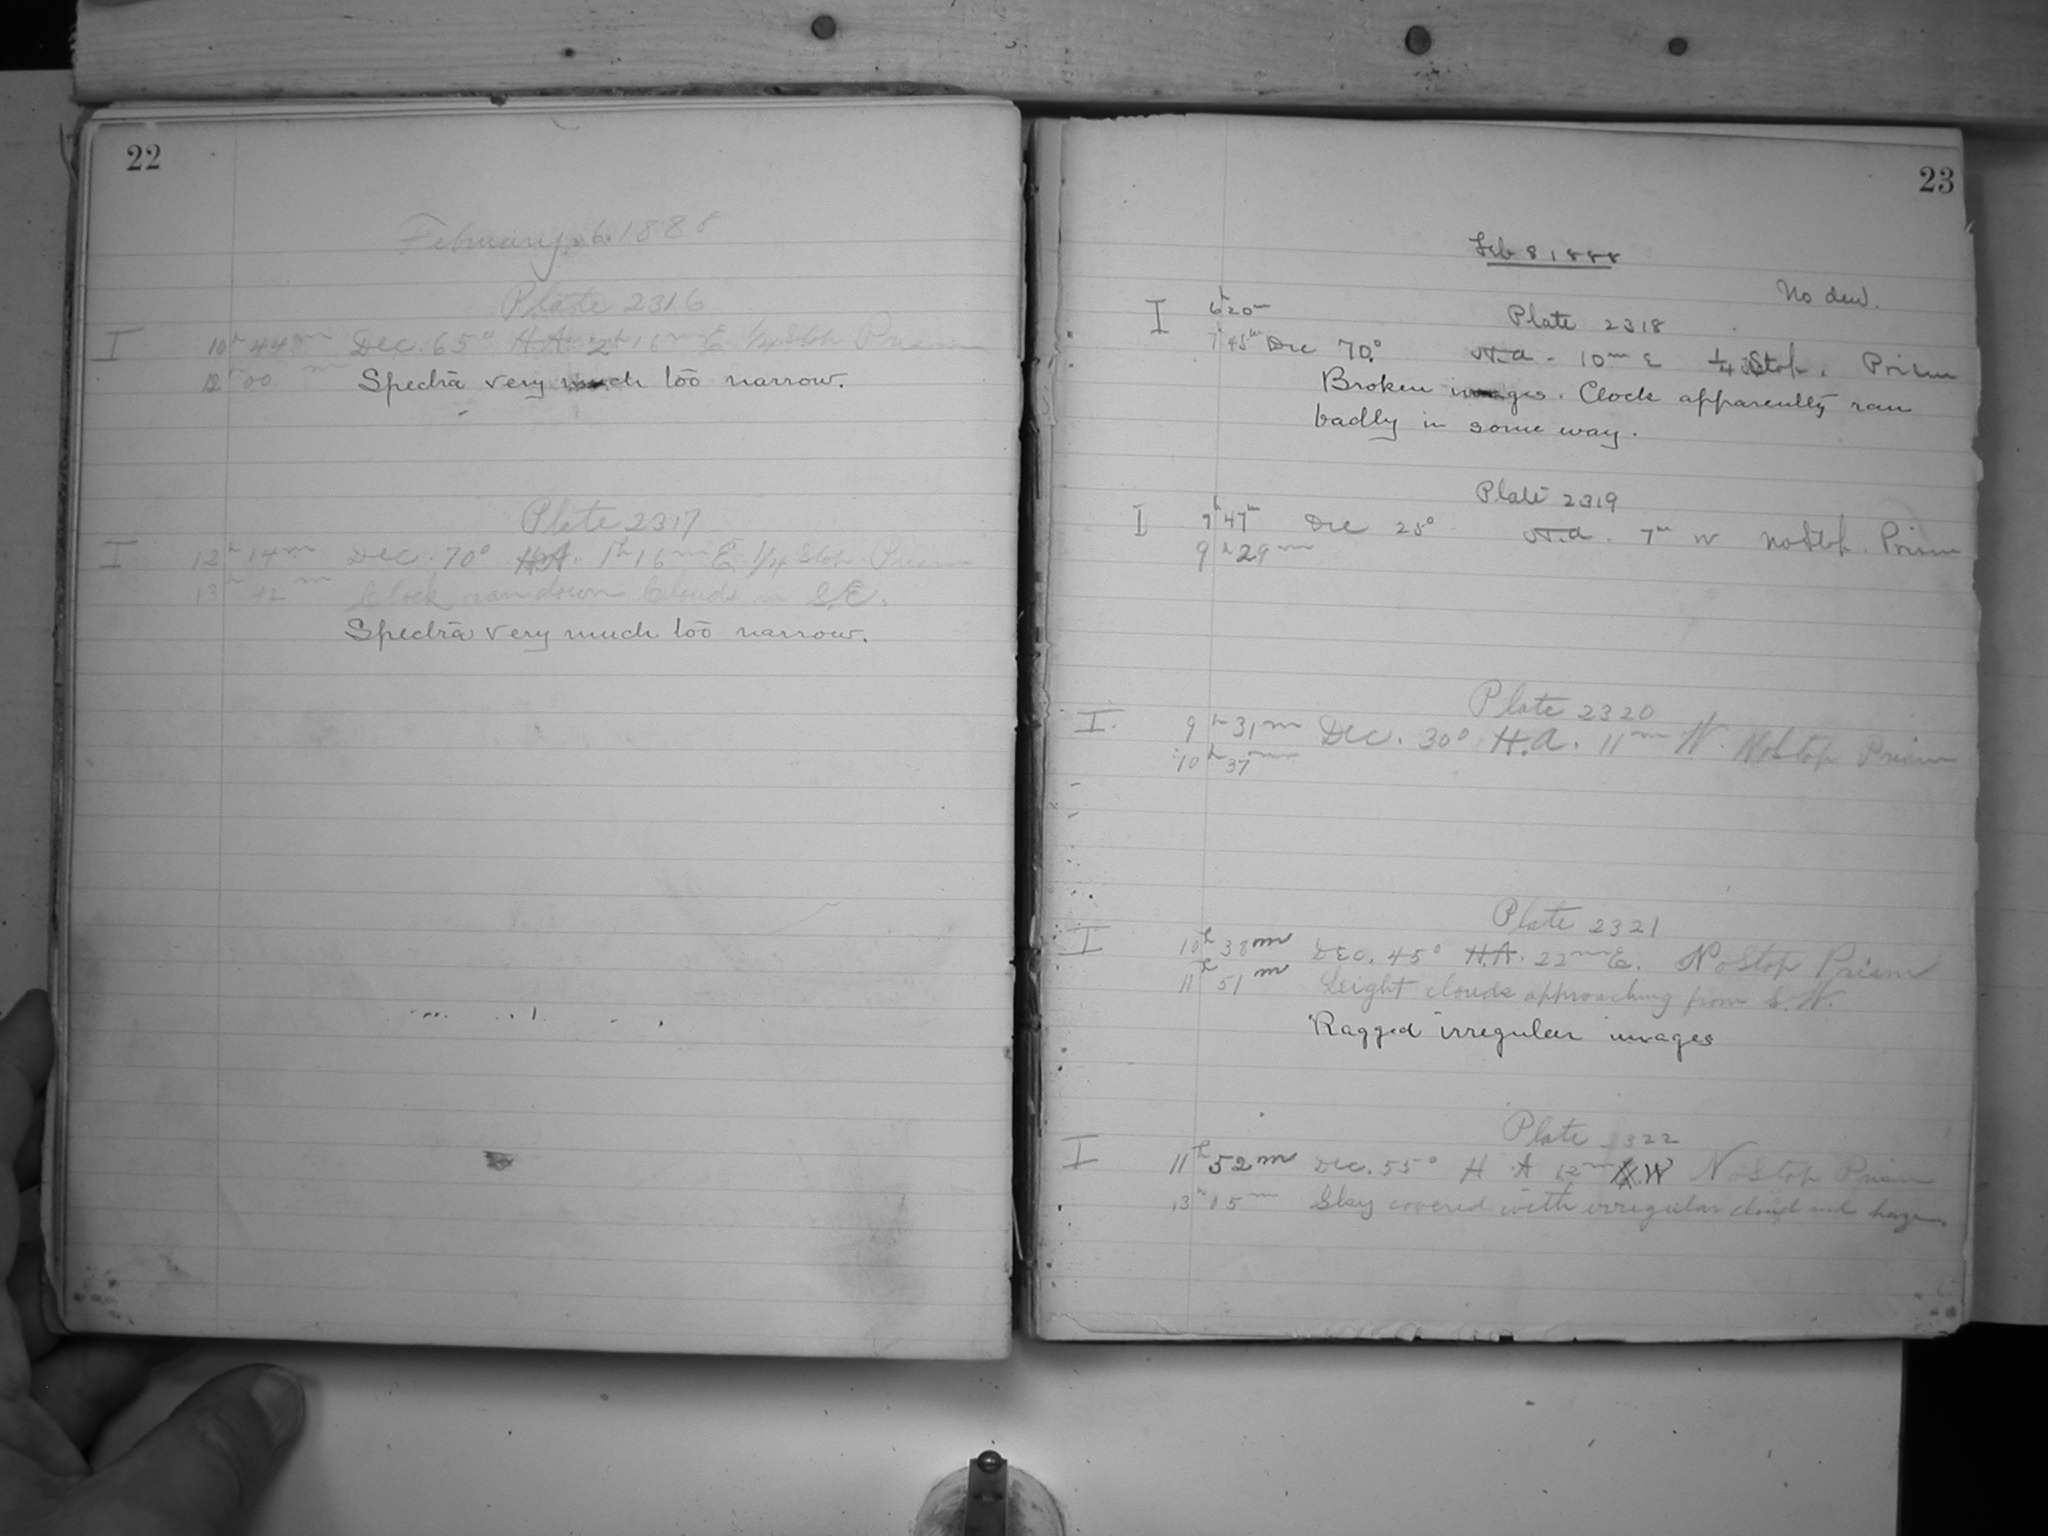 22
February 6. 1888
Plate 2316
I 10h 44m Dec. 65° H.A. 2h 16m E 1/4 Stop Prism
12h 00m Spectra very much too narrow.
Plate 2317
I 12h 14m Dec. 70° H.A. 1h 16m E. 1/4 Stop Prism
13h 42m Clock ran down Clouds in S.E.
Spectra very much too narrow.
23
Feb 8 1888
No dew.
I 6h 20m Plate 2318
7h 45m Dec 70° H.A. 10m E 1/4 Stop. Prism
Broken images. Clock apparently ran
badly in some way.
Plate 2319
I 47m Dec 25° H.A. 7m W No Stop. Prism
9h 29m
Plate 2320
I. 9h 31m Dec. 30° H.A. 11m W. No Stop Prism
10h 37m
Plate 2321
I 10h 38m Dec. 45° H.A. 22m E. No Stop Prism
11h 51m Leight clouds approaching from S.W.
Ragged irregular images
Plate 2322
I 11h 52m Dec. 55° H A 12m W No Stop Prism
13h 05m Sky covered with irregular cloud and haze.